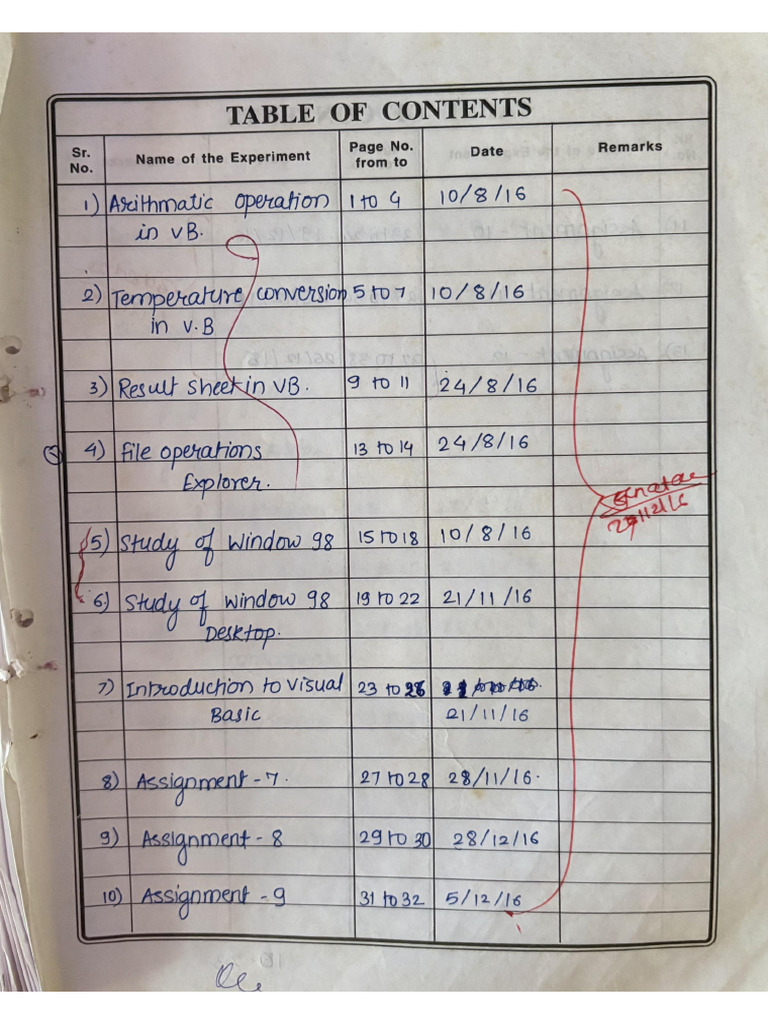 TABLE OF CONTENTS
Sr. No. Name of the Experiment Page No. from to Date Remarks
1) Arithmatic operation 1 to 4 10/8/16
in VB.
2) Temperature conversion 5 to 7 10/8/16
in V.B
3) Result sheet in VB. 9 to 11 24/8/16
4) File operations 13 to 14 24/8/16
Explorer.
5) Study of Window 98 15 to 18 10/8/16
6) Study of window 98 19 to 22 21/11/16
Desktop.
7) Introduction to Visual 23 to 26
Basic 21/11/16
8) Assignment - 7. 27 to 28 28/11/16.
9) Assignment - 8 29 to 30 28/12/16
10) Assignment - 9 31 to 32 5/12/16